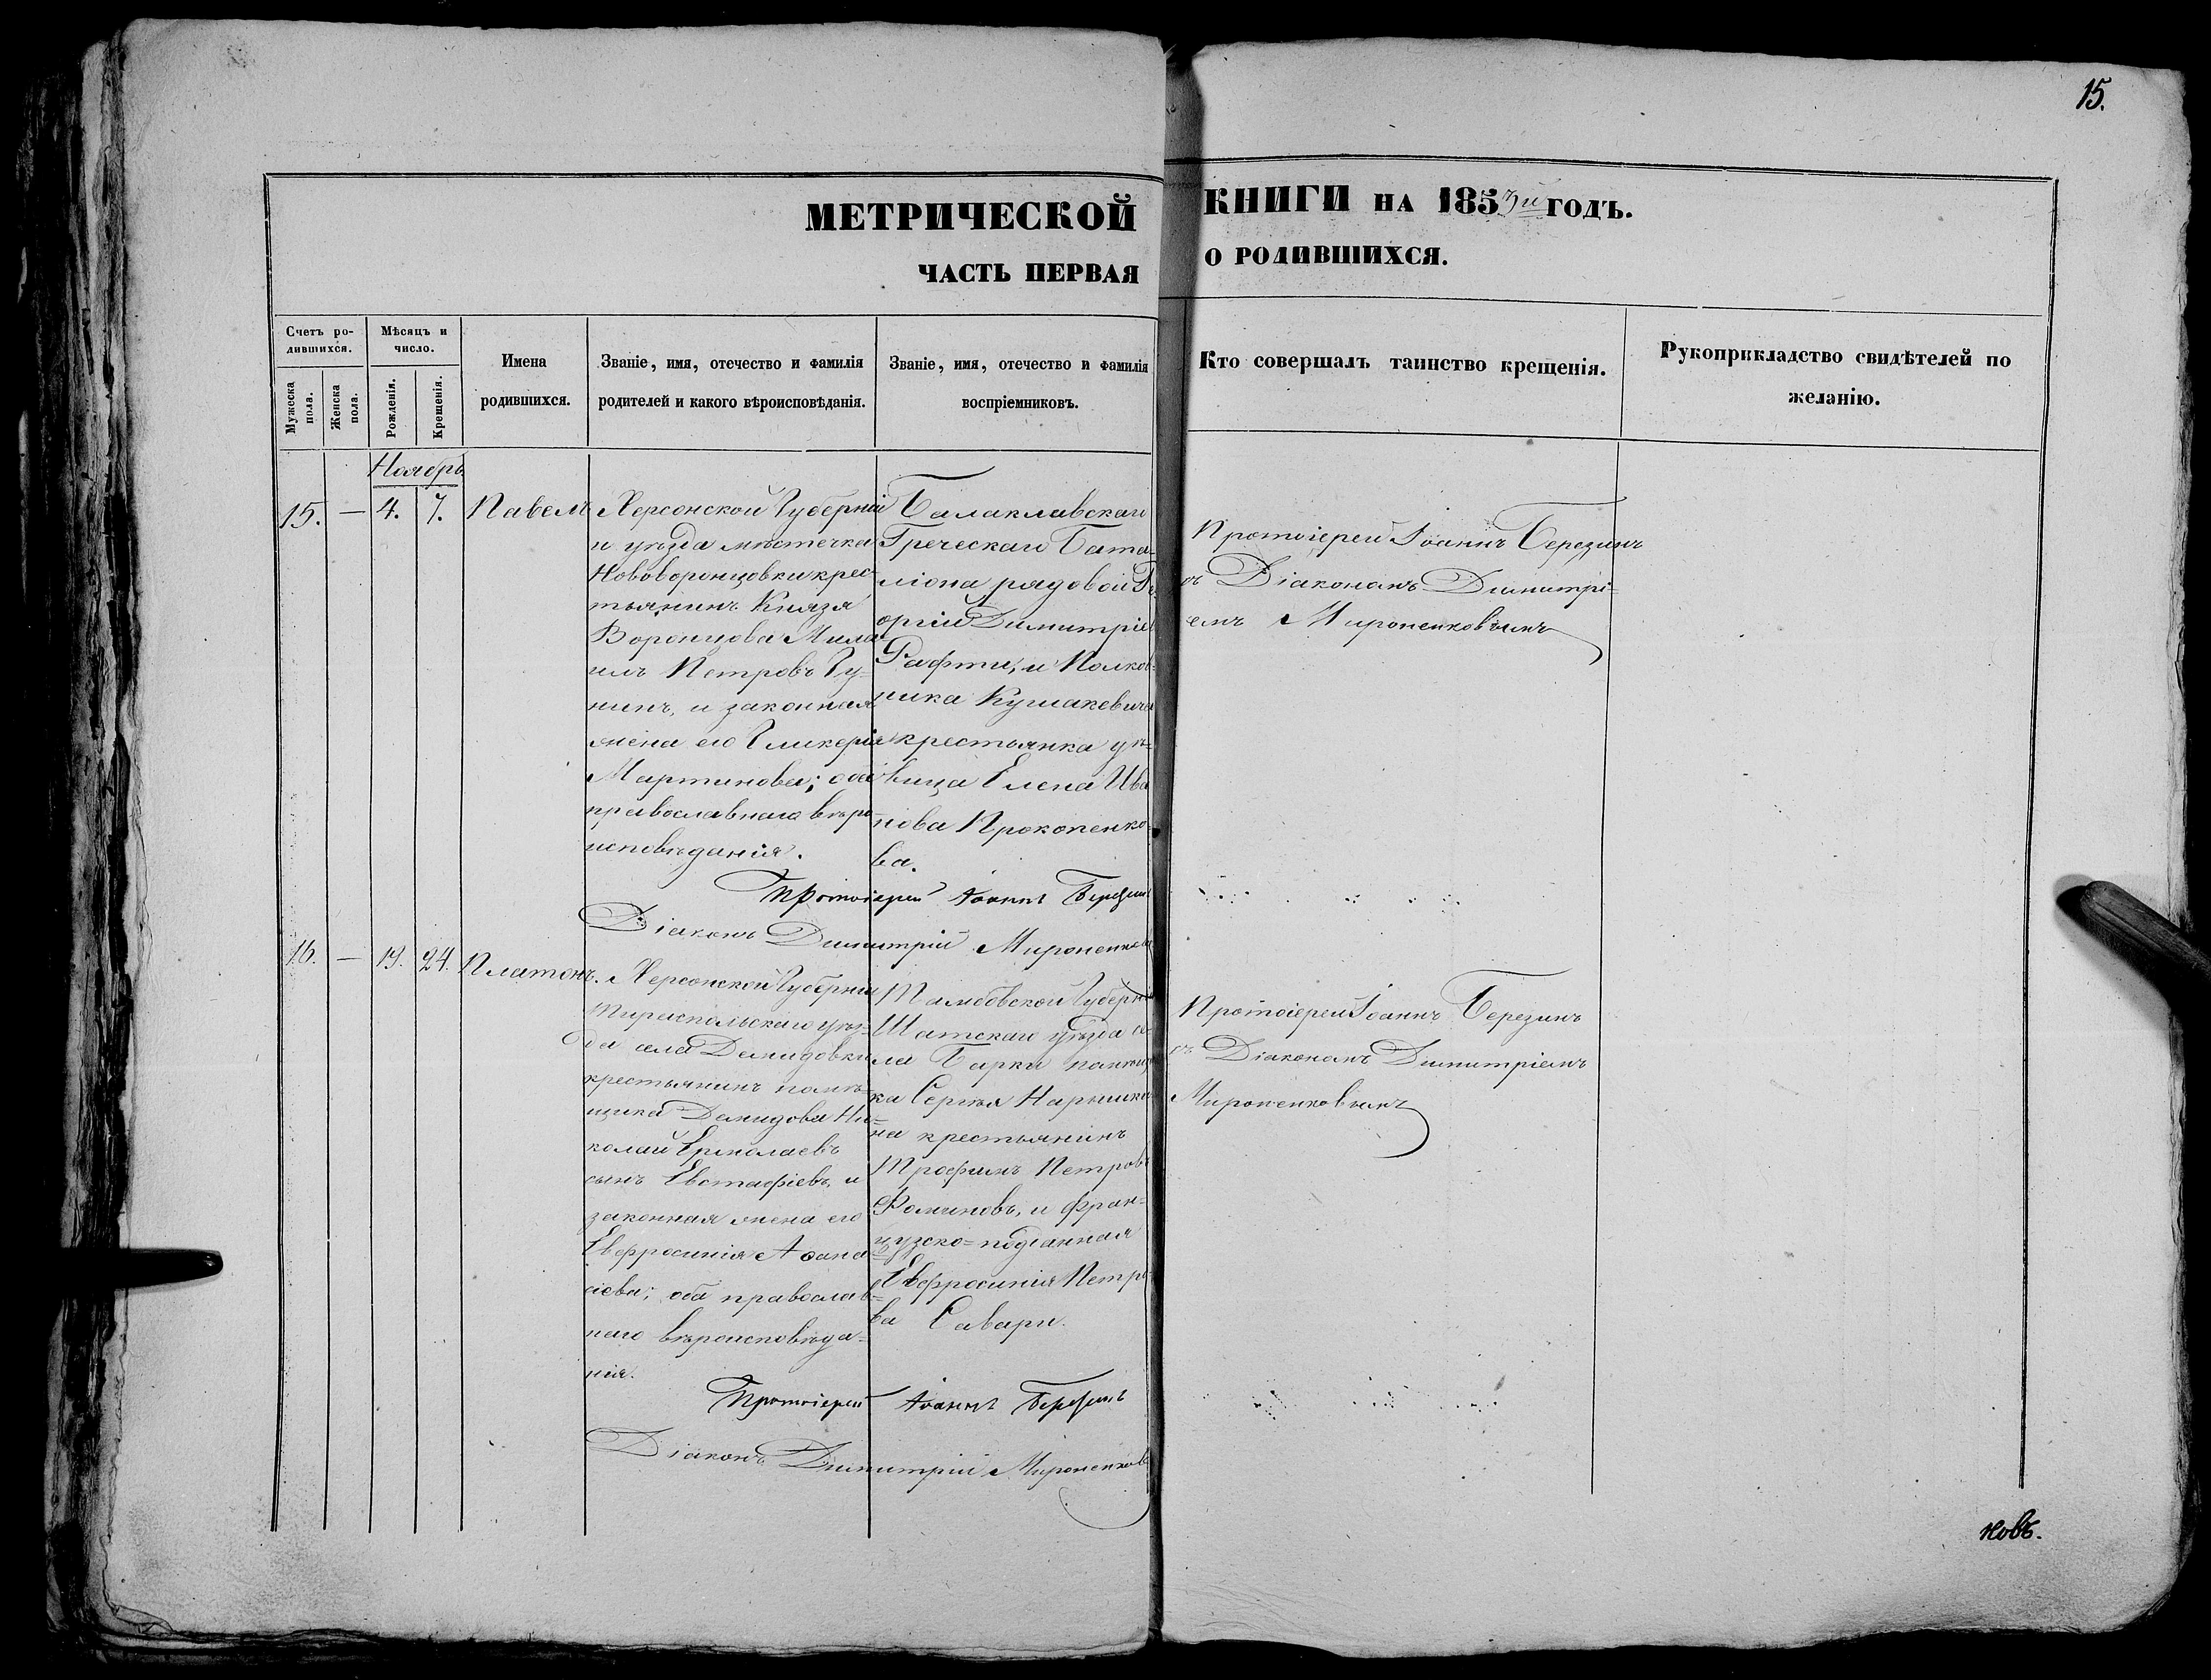 15.
МЕТРИЧЕСКОЙ КНИГИ НА 1853й ГОДЪ.
ЧАСТЬ ПЕРВАЯ О РОДИВШИХСЯ.
Счетъ ро-
дившихся.
Мужеска пола.
Женска пола.
Мѣсяцъ и
число.
Рожденія.
Крещенія.
Имена
родившихся.
Званіе, имя, отечество и фамилія
родителей и какого вѣроисповѣданія.
Званіе, имя, отечество и фамилія
воспріемниковъ.
Кто совершалъ таинство крещенія.
Рукоприкладство свидѣтелей по
желанію.
Ноябрь
15. — 4. 7. Павелъ
Херсонской Губерніи
и уѣзда мѣстечка
Нововоронцовки крес-
тьянинъ Князя
Воронцова Миха-
илъ Петровъ Гу-
нинъ, и законная
жена его Гликерія
Мартинова; оба
православнаго вѣро-
исповѣданія.
Балаклавскаго
Греческаго Бата-
ліона рядовой Ге-
оргій Димитріев
Рафти, и Полков-
ника Кушакевича
крестьянка дѣ-
вица Елена Ива
нова Прокопенко-
ва.
Протоіерей Іоаннъ Березинъ
съ Діакономъ Димитрі-
емъ Мироненковымъ
Протоіерей Іоаннъ Березинъ
Діаконъ Димитрій Мироненковъ
16. — 19. 24. Платонъ.
Херсонской Губерніи
Тираспольскаго уѣз-
да села Демидовки
крестьянинъ помѣ-
щика Демидова Ни-
колай Ермолаевъ
сынъ Евстафіевъ, и
законная жена его
Евфросинія Аѳана-
сіева; оба православ-
наго вѣроисповѣда-
нія.
Тамбовской Губерніи
Шатскаго уѣзда се-
ла Барки помѣщи
ка Сергѣя Нарышки
на крестьянинъ
Трофимъ Петровъ
Фоминовъ, и фран-
цузско-подданная
Евфросинія Петро-
ва Савари.
Протоіерей Іоаннъ Березинъ
съ Діакономъ Димитріемъ
Мироненковымъ
Протоіерей Іоаннъ Березинъ
Діаконъ Димитрій Мироненковъ
новъ.